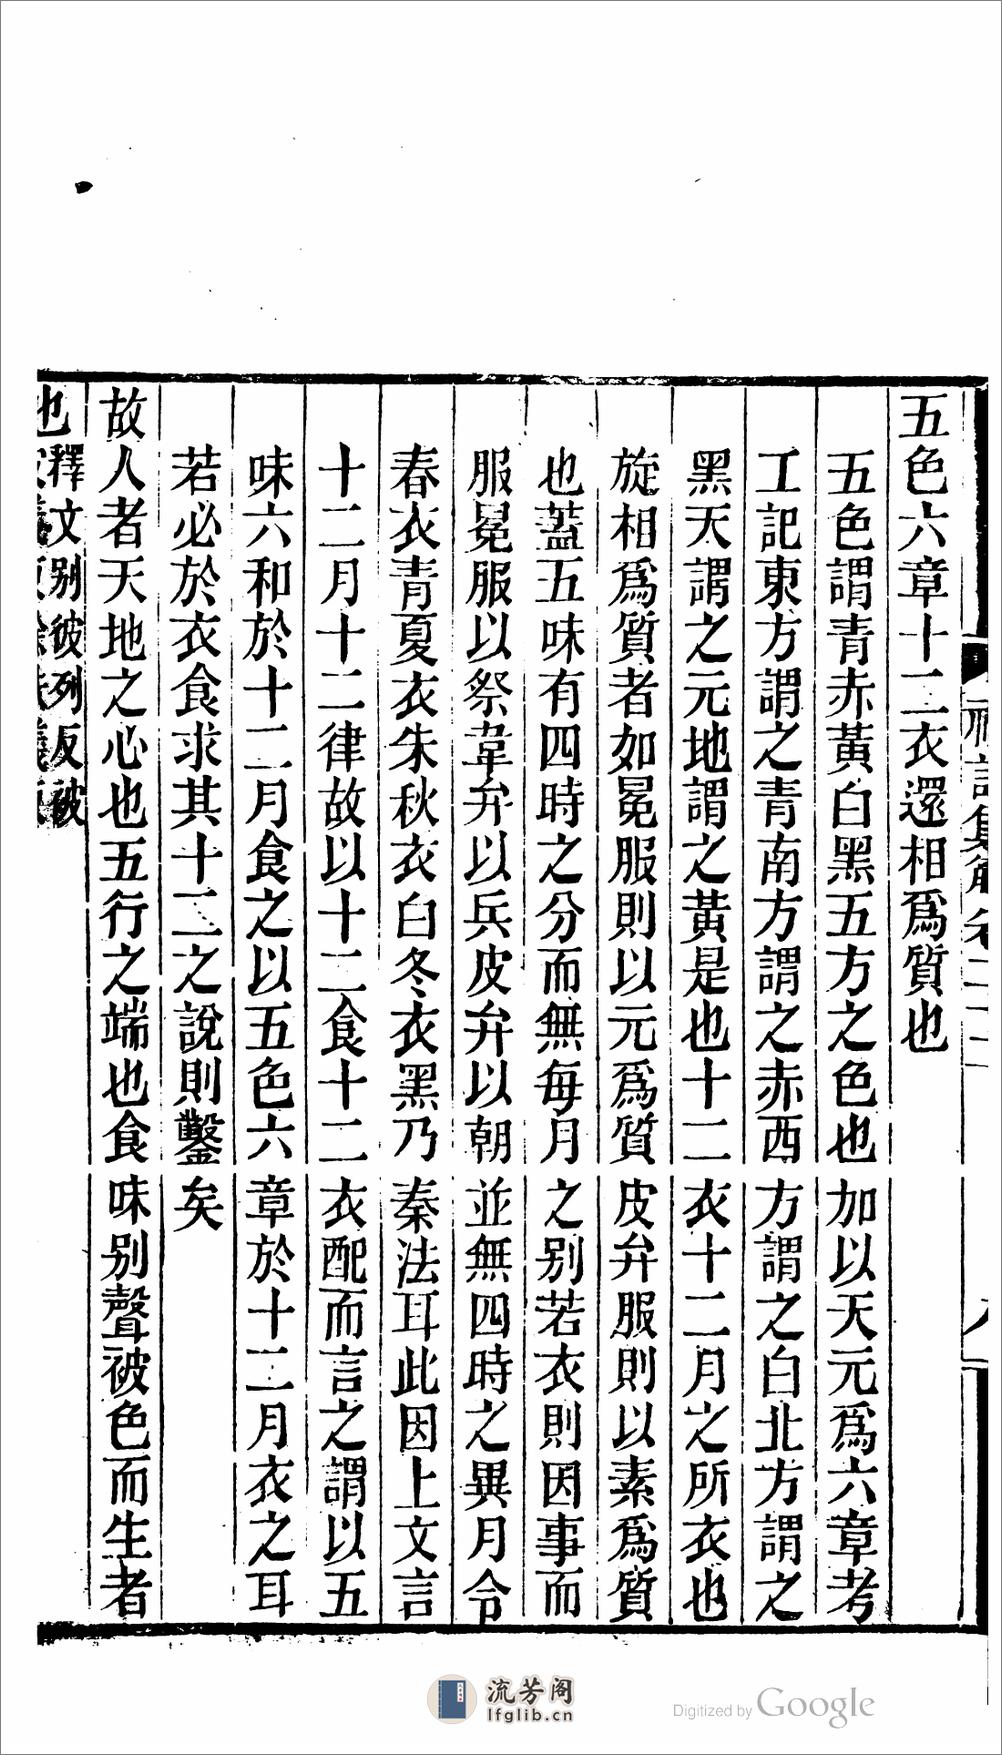 禮記集解卷二十二
五色六章十二衣還相爲質也
五色謂青赤黃白黑五方之色也加以天元爲六章考
工記東方謂之青南方謂之赤西方謂之白北方謂之
黑天謂之元地謂之黃是也十二衣十二月之所衣也
旋相爲質者如冕服則以元爲質皮弁服則以素爲質
也蓋五味有四時之分而無每月之别若衣則因事而
服冕服以祭韋弁以兵皮弁以朝並無四時之異月令
春衣青夏衣朱秋衣白冬衣黑乃秦法耳此因上文言
十二月十二律故以十二食十二衣配而言之謂以五
味六和於十二月食之以五色六章於十二月衣之耳
若必於衣食求其十二之說則鑿矣
故人者天地之心也五行之端也食味别聲被色而生者
也釋文别彼列反被
流芳阁
lfglib.cn
Digitized by Google